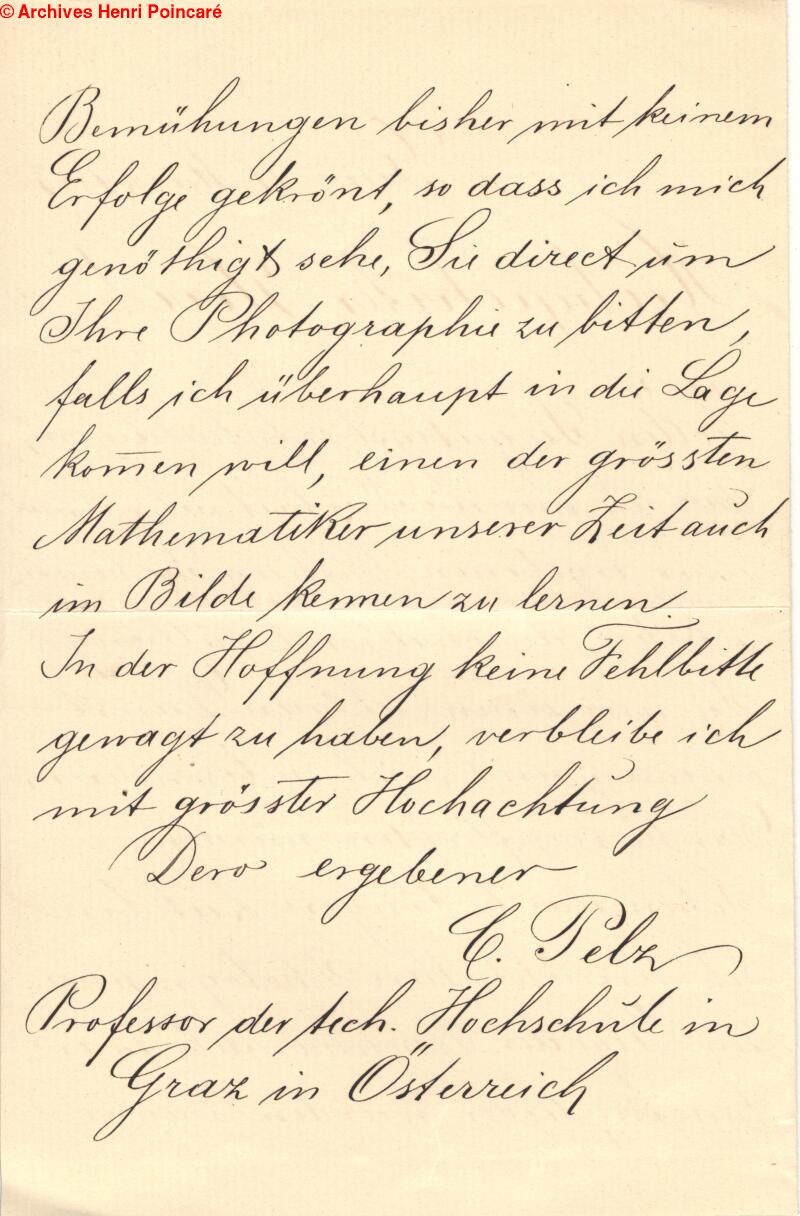 © Archives Henri Poincaré
Bemühungen bisher mit keinem
Erfolge gekrönt, so dass ich mich
genöthigt sehe, Sie direct um
Ihre Photographie zu bitten,
falls ich überhaupt in die Lage
kom̄en will, einen der grössten
Mathematiker unserer Zeit auch
im Bilde kennen zu lernen.
In der Hoffnung keine Fehlbitte
gewagt zu haben, verbleibe ich
mit grösster Hochachtung
Dero ergebener
C. Pelz
Professor der tech. Hochschule in
Graz in Österreich